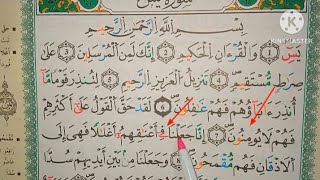 سورة يس
بِسْمِ اللَّهِ الرَّحْمَٰنِ الرَّحِيمِ
يسٓ ١ وَالْقُرْءَانِ الْحَكِيمِ ٢ إِنَّكَ لَمِنَ الْمُرْسَلِينَ ٣ عَلَىٰ
صِرَٰطٍ مُّسْتَقِيمٍ ٤ تَنزِيلَ الْعَزِيزِ الرَّحِيمِ ٥ لِتُنذِرَ قَوْمًا مَّا
أُنذِرَ ءَابَآؤُهُمْ فَهُمْ غَٰفِلُونَ ٦ لَقَدْ حَقَّ الْقَوْلُ عَلَىٰٓ أَكْثَرِهِمْ
فَهُمْ لَا يُؤْمِنُونَ ٧ إِنَّا جَعَلْنَا فِىٓ أَعْنَٰقِهِمْ أَغْلَٰلًا فَهِىَ إِلَى
الْأَذْقَانِ فَهُم مُّقْمَحُونَ ٨ وَجَعَلْنَا مِنۢ بَيْنِ أَيْدِيهِمْ سَدًّا
KINEMASTER